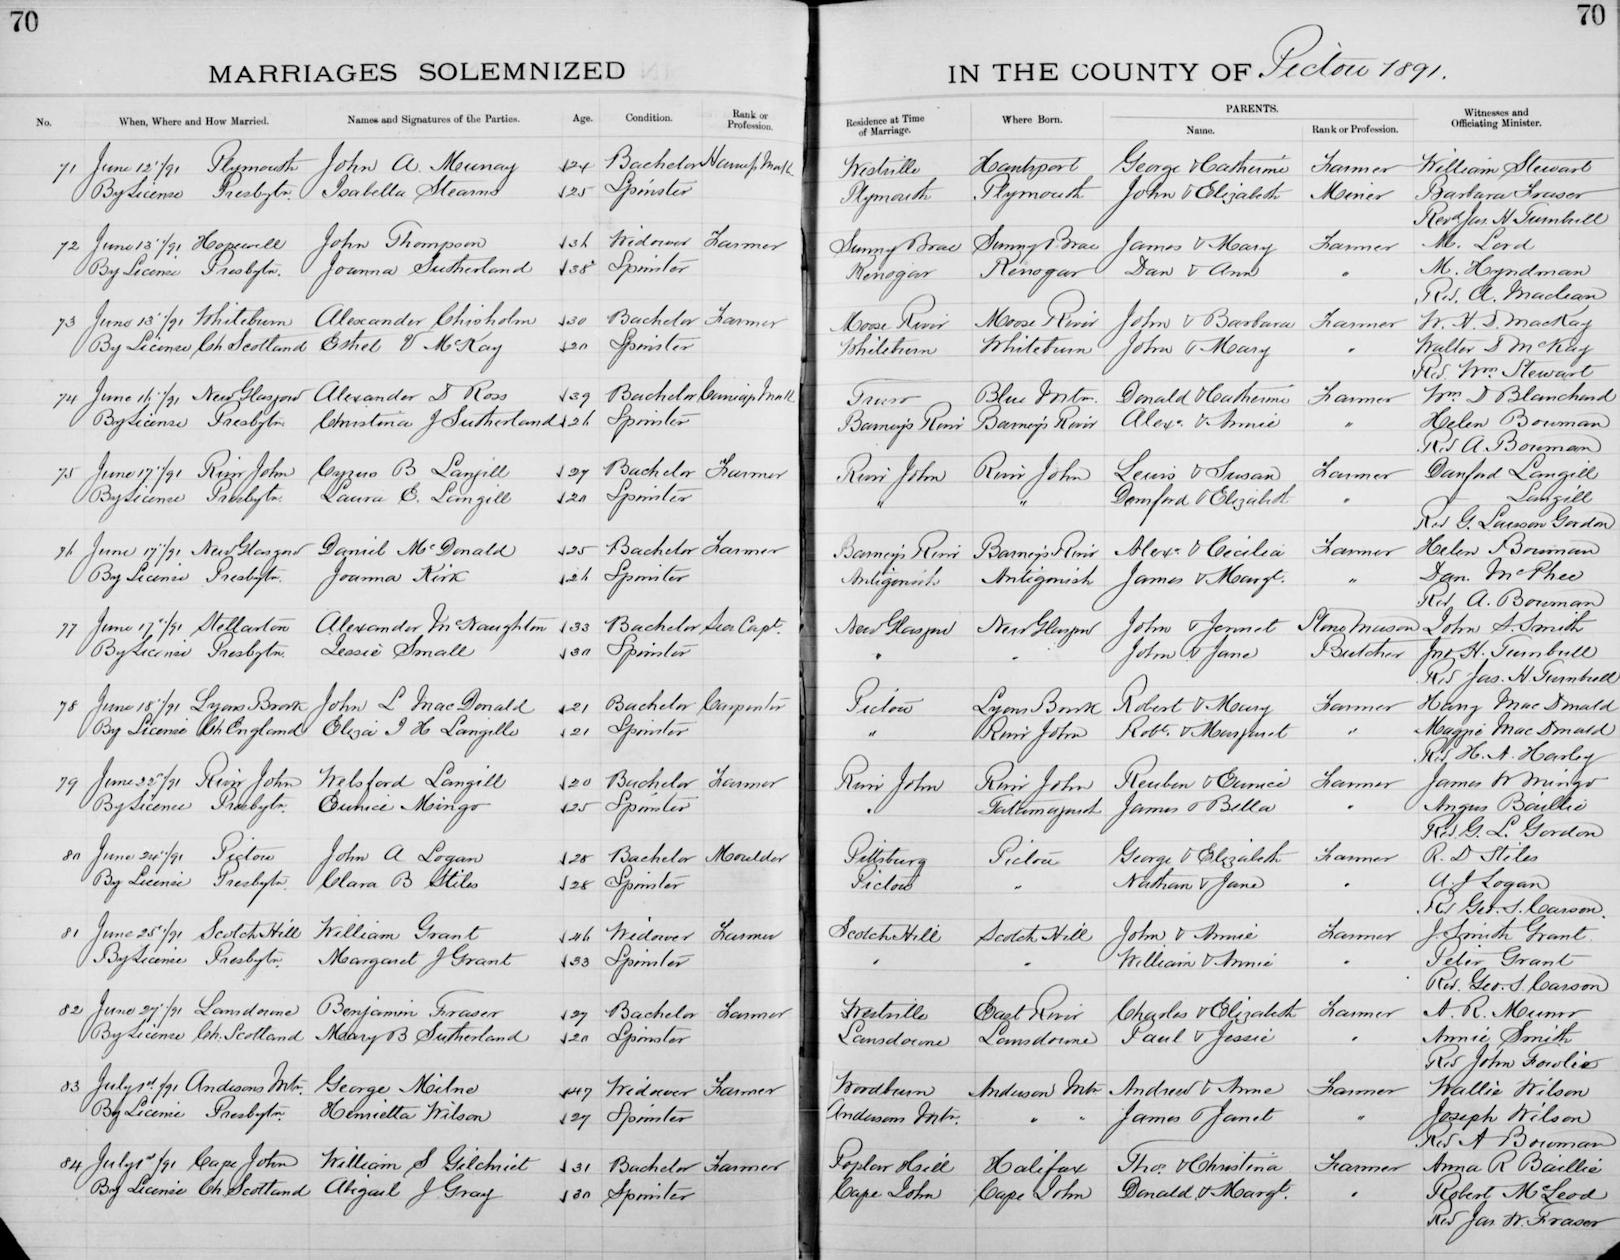 70
70
MARRIAGES SOLEMNIZED
IN THE COUNTY OF Pictou 1891.
No. When, Where and How Married. Names and Signatures of the Parties. Age. Condition. Rank or Profession. Residence at Time of Marriage. Where Born. PARENTS. Name. Rank or Profession. Witnesses and Officiating Minister.
71 June 12"/91 Plymouth John A. Murray 24 Bachelor Westville Hantsport George & Catherine Farmer William Stewart
By License Presbytn. Isabella Stearns 25 Spinster Plymouth Plymouth John & Elizabeth Miner Barbara Fraser
Revd Jas. H Turnbull
72 June 13"/91 Hopewell John Thompson 36 Widower Farmer Sunny Brae Sunny Brae James & Mary Farmer M. Lord
By License Presbytn. Joanna Sutherland 38 Spinster Kenogar Kenogar Dan & Ann " M. Hyndman
Rev. A. Maclean
73 June 13"/91 Whiteburn Alexander Chisholm 30 Bachelor Farmer Moose River Moose River John & Barbara Farmer W. H. D. MacKay
By License Ch Scotland Ethel V McKay 20 Spinster Whiteburn Whiteburn John & Mary " Walter D McKay
Rev Wm. Stewart
74 June 16"/91 New Glasgow Alexander D Ross 39 Bachelor Carriage Mak Truro Blue Mtn. Donald & Catherine Farmer Wm D Blanchard
By License Presbytn Christina J Sutherland 26 Spinster Barney's River Barney's River Alexr. & Annie " Helen Bowman
Rev A Bowman
75 June 17"/91 River John Cyrus B Langill 27 Bachelor Farmer River John River John Lewis & Susan Farmer Danford Langill
By License Presbytn. Laura E. Langill 20 Spinster " " Danford & Elizabeth " Langill
Rev G. Lawson Gordon
76 June 17"/91 New Glasgow Daniel McDonald 25 Bachelor Farmer Barney's River Barney's River Alexr. & Cecilia Farmer Helen Bowman
By License Presbytn. Joanna Kirk 26 Spinster Antigonish Antigonish James & Margt. " Dan. McPhee
Rev A. Bowman
77 June 17"/91 Stellarton Alexander McNaughton 33 Bachelor Sea Capt. New Glasgow New Glasgow John & Jennet Stone Mason John S. Smith
By License Presbytn. Lessie Small 30 Spinster " " John & Jane Butcher Jno H. Turnbull
Rev Jas. H. Turnbull
78 June 18"/91 Lyons Brook John L MacDonald 21 Bachelor Carpenter Pictou Lyons Brook Robert & Mary Farmer Harry MacDonald
By License Ch England Eliza I H Langille 21 Spinster " River John Robt. & Margaret " Maggie MacDonald
Rev H. A. Harley
79 June 22"/91 River John Welsford Langill 20 Bachelor Farmer River John River John Reuben & Eunice Farmer James W Mingo
By License Presbytn. Eunice Mingo 25 Spinster " Tatamagouch James & Bella " Angus Baillie
Rev G. L. Gordon
80 June 24"/91 Pictou John A Logan 28 Bachelor Moulder Pittsburg Pictou George & Elizabeth Farmer R. D Stiles
By License Presbytn. Clara B Stiles 28 Spinster Pictou " Nathan & Jane " A. J Logan
Rev Geo. S. Carson.
81 June 25"/91 Scotch Hill William Grant 46 Widower Farmer Scotch Hill Scotch Hill John & Annie Farmer J. Smith Grant
By License Presbytn. Margaret J Grant 33 Spinster " " William & Annie " Peter Grant
Rev. Geo. S. Carson
82 June 27"/91 Lansdowne Benjamin Fraser 27 Bachelor Farmer Westville East River Charles & Elizabeth Farmer A. R. Munro
By License Ch. Scotland Mary B Sutherland 20 Spinster Lansdowne Lansdowne Paul & Jessie " Annie Smith
Rev John Fowlie
83 July 1st/91 Andersons Mtn. George Milne 47 Widower Farmer Woodburn Anderson Mtn Andrew & Anne Farmer Wallie Wilson
By License Presbytn. Henrietta Wilson 27 Spinster Andersons Mtn. " " James & Janet " Joseph Wilson
Rev A Bowman
84 July 1st/91 Cape John William S Gilchrist 31 Bachelor Farmer Poplar Hill Halifax Thos. & Christina Farmer Anna R Baillie
By License Ch. Scotland Abigail J Gray 30 Spinster Cape John Cape John Donald & Margt. " Robert McLeod
Rev Jas. W. Fraser